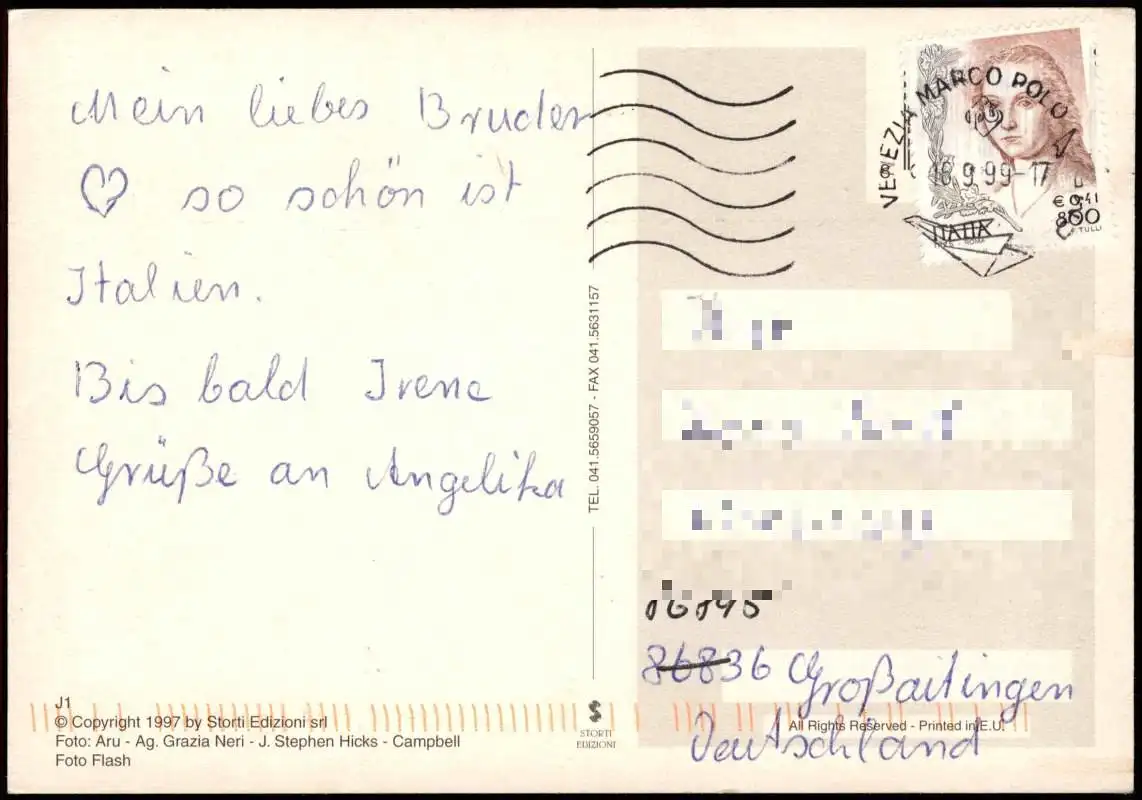 Mein liebes Bruder
♡ so schön ist
Italien.
Bis bald Irene
Grüße an Angelika
J1
© Copyright 1997 by Storti Edizioni srl
Foto: Aru - Ag. Grazia Neri - J. Stephen Hicks - Campbell
Foto Flash
TEL. 041.5659057 - FAX 041.5631157
STORTI
EDIZIONI
VENEZIA MARCO POLO
18.9.99-17
€ 0,41
800
ITALIA
TULLI
86836 Großaitingen
Deutschland
All Rights Reserved - Printed in E.U.